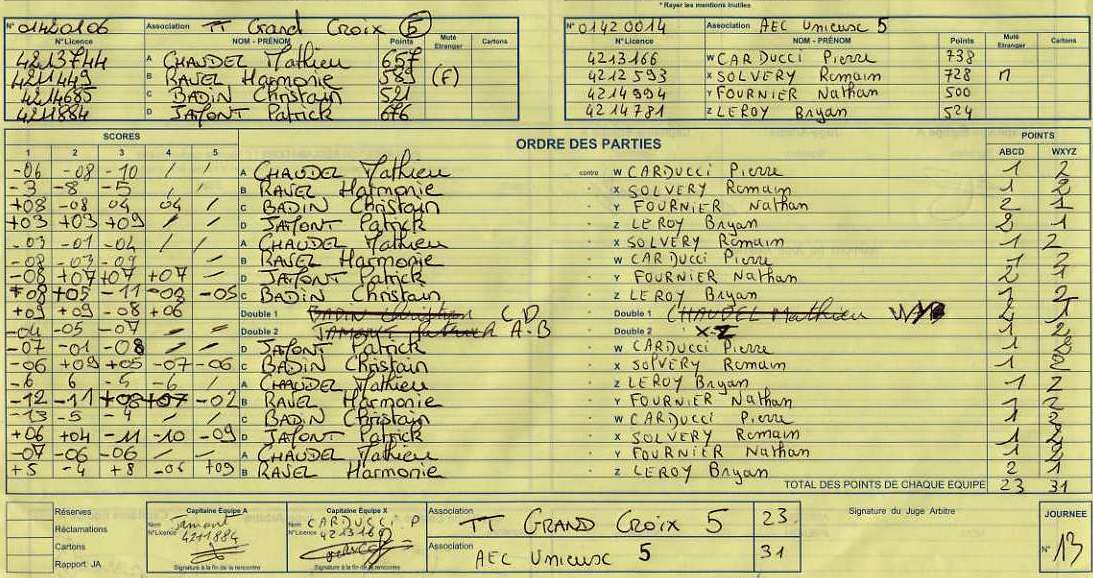 * Rayer les mentions inutiles
N° 01420106 Association TT Grand Croix 5
N° 01420014 Association AEC Unieusc 5
N°Licence NOM - PRÉNOM Points Muté Etranger Cartons
N°Licence NOM - PRÉNOM Points Muté Etranger Cartons
4213744 A CHAUDEL Mathieu 657
4213166 W CARDUCCI Pierre 738
4211449 B RAVEL Harmonie 589 (F)
4212593 X SOLVERY Romain 728 M
4214685 C BADIN Christain 521
4214994 Y FOURNIER Nathan 500
4211884 D JAMONT Patrick 676
4214781 Z LEROY Bryan 524
SCORES ORDRE DES PARTIES POINTS
1 2 3 4 5 ABCD WXYZ
-06 -08 -10 / / A CHAUDEL Mathieu contre W CARDUCCI Pierre 1 2
-3 -8 -5 / B RAVEL Harmonie - X SOLVERY Romain 1 2
+08 -08 04 04 / C BADIN Christain - Y FOURNIER Nathan 2 1
+03 +03 +09 / / D JAMONT Patrick - Z LEROY Bryan 2 1
-03 -01 -04 / / A CHAUDEL Mathieu - X SOLVERY Romain 1 2
-08 -03 -09 - B RAVEL Harmonie - W CARDUCCI Pierre 1 2
-08 +07 +07 +07 - D JAMONT Patrick - Y FOURNIER Nathan 2 1
+08 +05 -11 -08 -05 C BADIN Christain - Z LEROY Bryan 1 2
+09 +09 -08 +06 Double 1 C.D - Double 1 CHAUDEL Mathieu 2 1
-04 -05 -07 / / Double 2 A-B - Double 2 X-Z 1 2
-07 -01 -08 / / D JAMONT Patrick - W CARDUCCI Pierre 1 2
-06 +09 +05 -07 -06 C BADIN Christain - X SOLVERY Romain 1 2
-6 6 -5 -6 / A CHAUDEL Mathieu - Z LEROY Bryan 1 2
-12 -11 +08 +07 -02 B RAVEL Harmonie - Y FOURNIER Nathan 1 2
-13 -5 -4 / / C BADIN Christain - W CARDUCCI Pierre 1 2
+06 +04 -11 -10 -09 D JAMONT Patrick - X SOLVERY Romain 1 2
-07 -06 -06 / / A CHAUDEL Mathieu - Y FOURNIER Nathan 1 2
+5 -4 +8 -06 +09 B RAVEL Harmonie - Z LEROY Bryan 2 1
TOTAL DES POINTS DE CHAQUE EQUIPE 23 31
Réserves
Réclamations
Cartons
Rapport JA
Capitaine Equipe A
Nom Jamont
N°Licence 4211884
Signature à la fin de la rencontre
Capitaine Equipe X
Nom CARDUCCI P
N°Licence
Signature à la fin de la rencontre
Association TT GRAND CROIX 5 23
Association AEC Unieusc 5 31
Signature du Juge Arbitre
JOURNEE
N° 13